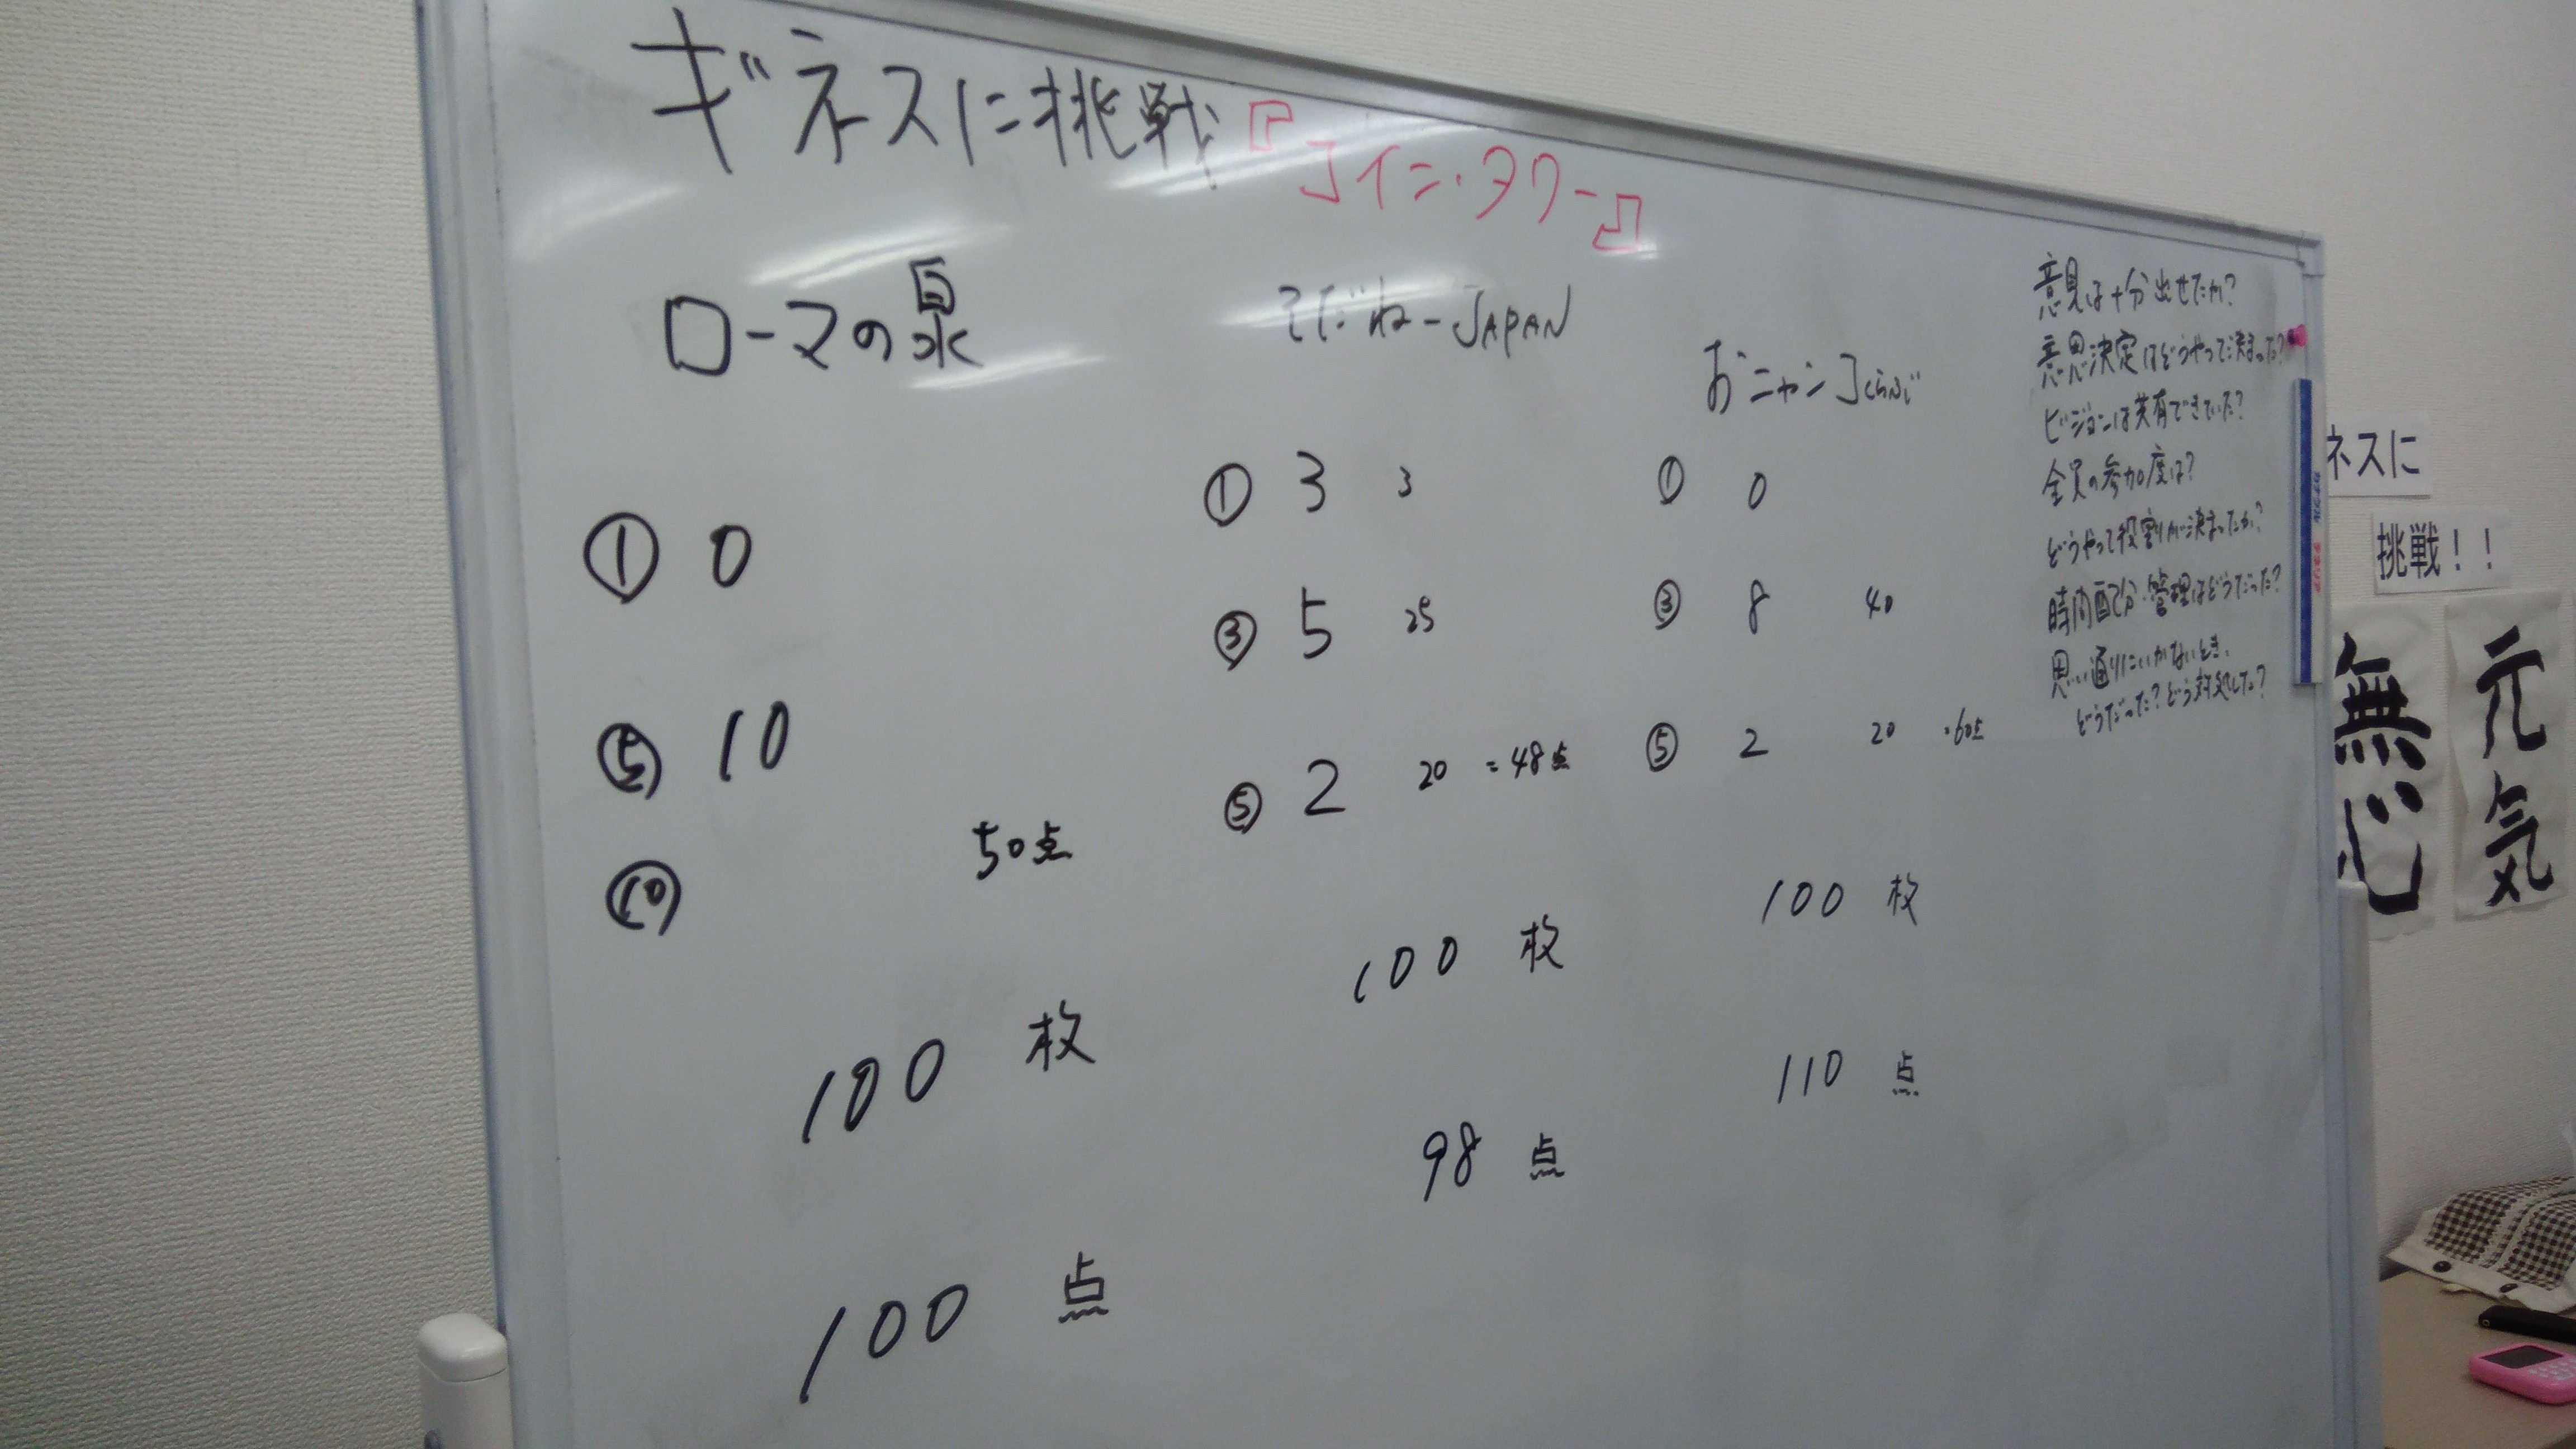 ギネスに挑戦『コイン・タワー』
ローマの泉
① 0
⑤ 10
⑩
50点
100 枚
100 点
そだねーJAPAN
① 3 3
③ 5 25
⑤ 2 20 = 48点
100 枚
98 点
おニャンコくらぶ
① 0
③ 8 40
⑤ 2 20 ・60点
100 枚
110 点
意見は十分出せたか?
意思決定はどうやって決まった?
ビジョンは共有できていた?
全員の参加度は?
どうやって役割が決まったか?
時間配分・管理はどうだった?
思い通りにいかないとき、
どうだった?どう対処した?
ネスに
挑戦!!
無心
元気